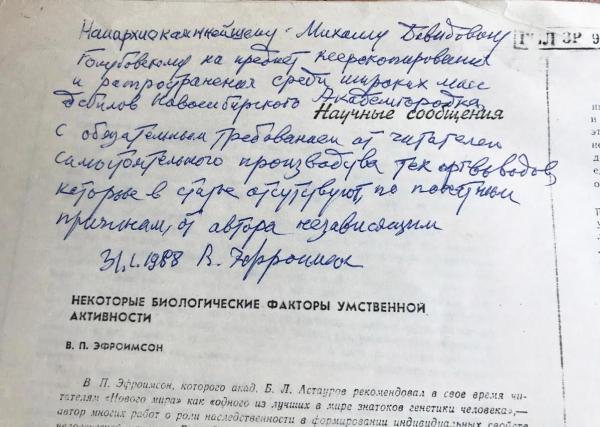 Наиархиважнейшему - Михаилу Давидовичу
Голубовскому на предмет ксерокопирования
и распространения среди широких масс
дебилов Новосибирского Академгородка
Научные сообщения
с обязательным требованием от читателей
самостоятельного производства тех выводов,
которые в статье отсутствуют, по понятным
причинам, от автора независящим
31.I.1988 В. Эфроимсон
НЕКОТОРЫЕ БИОЛОГИЧЕСКИЕ ФАКТОРЫ УМСТВЕННОЙ
АКТИВНОСТИ
В. П. ЭФРОИМСОН
В П. Эфроимсон, которого акад. Б. Л. Астауров рекомендовал в свое время чи-
тателям «Нового мира» как «одного из лучших в мире знатоков генетики человека»,—
автор многих работ о роли наследственности в формировании индивидуальных свойств